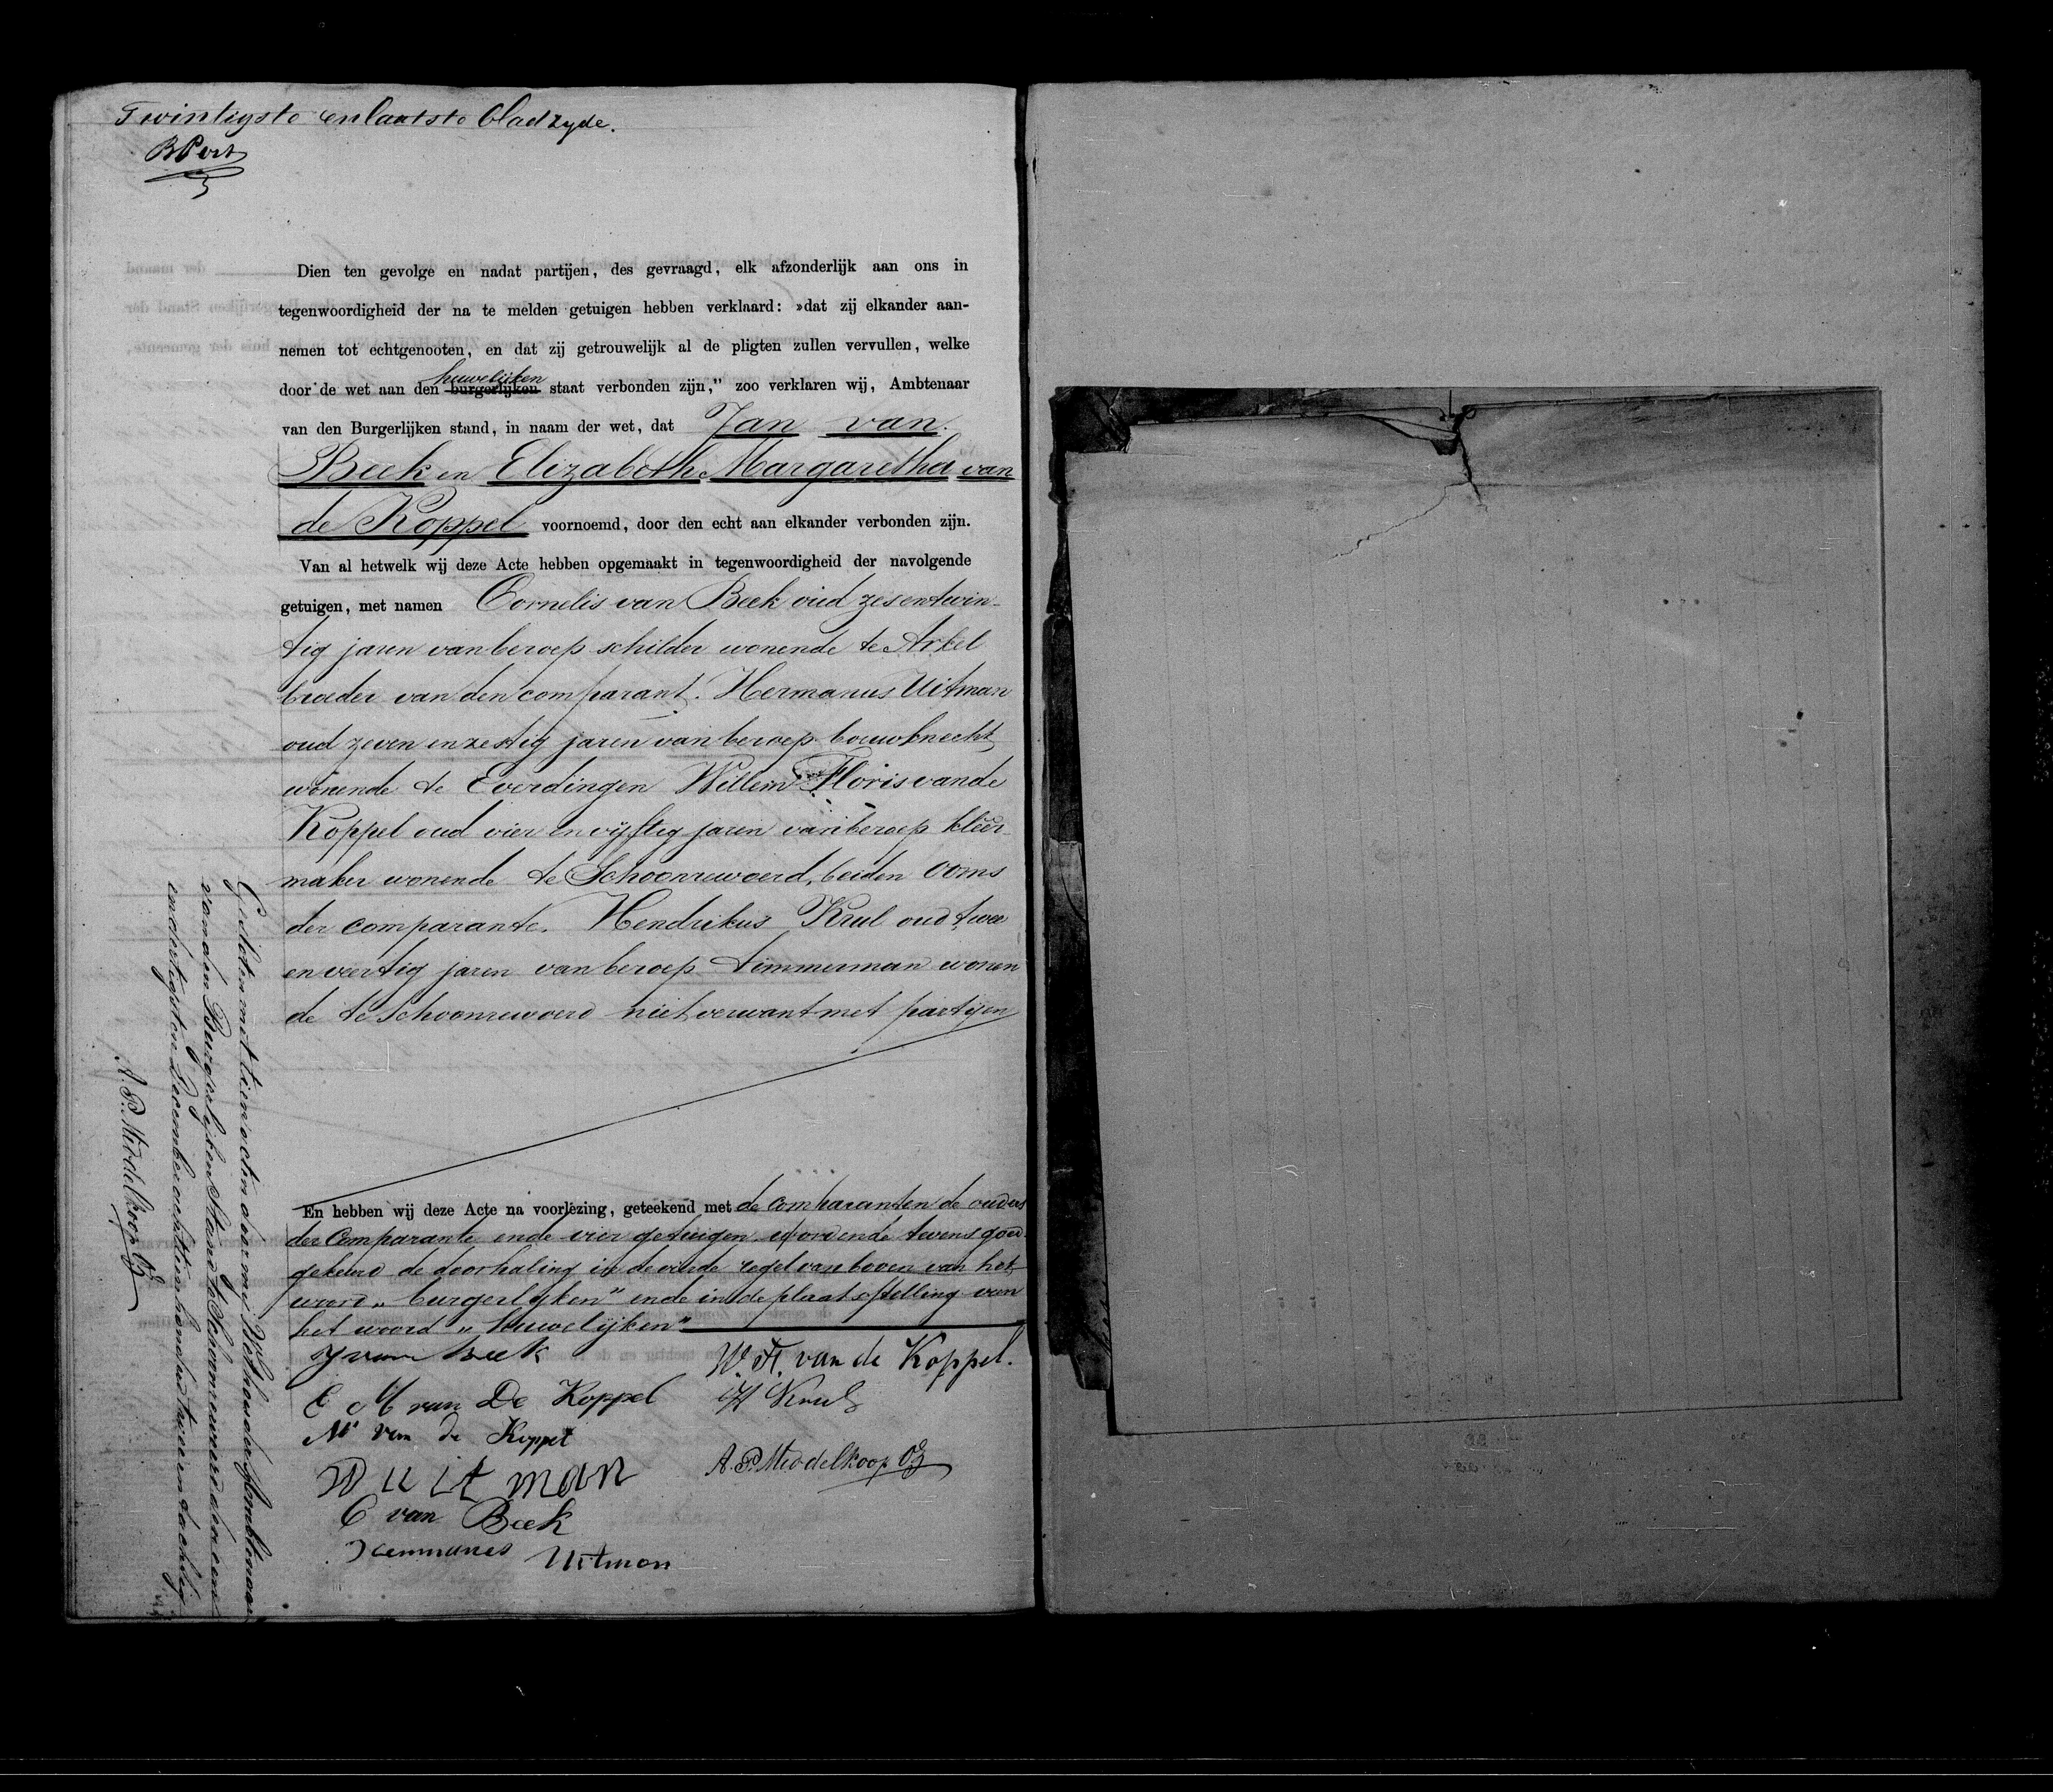 Twintigste en laatste bladzyde.
BPert
Dien ten gevolge en nadat partijen, des gevraagd, elk afzonderlijk aan ons in
tegenwoordigheid der na te melden getuigen hebben verklaard: »dat zij elkander aan-
nemen tot echtgenooten, en dat zij getrouwelijk al de pligten zullen vervullen, welke
huwelijken
door de wet aan den burgerlijken staat verbonden zijn,” zoo verklaren wij, Ambtenaar
van den Burgerlijken stand, in naam der wet, dat Jan van
Beek en Elizabeth Margaretha van
de Koppel voornoemd, door den echt aan elkander verbonden zijn.
Van al hetwelk wij deze Acte hebben opgemaakt in tegenwoordigheid der navolgende
getuigen, met namen Cornelis van Beek oud zesentwin-
tig jaren van beroep schilder wonende te Arkel
broeder van den comparant. Hermanus Uitman
oud zeven en zestig jaren van beroep bouwknecht
wonende te Everdingen Willem Floris van de
Koppel oud vier en vijftig jaren van beroep kleer-
maker wonende te Schoonrewoerd, beiden ooms
der comparante. Hendrikus Krul oud twee
en veertig jaren van beroep timmerman wonen
de te Schoonrewoerd niet verwant met partijen
En hebben wij deze Acte na voorlezing, geteekend met de comparanten de ouders
der Comparante en de vier getuigen wordende tevens goed-
gekeurd de doorhaling in de vierde regel van boven van het
woord „burgerlijken” en de in de plaatsstelling van
het woord „huwelijken”
J van Beek
W. F. van de Koppel.
E M van De Koppel
H Krul
M van de Koppel
W uit man
A. P. Middelkoop Oz
C van Beek
Hermanus Uitman
Gesloten met tien acten door mij Wethouder Ambtenaar
van den Burgerlijken Stand te Schoonrewoerd den een
en dertigsten December achttienhonderd twee en tachtig
A. P. Middelkoop Oz